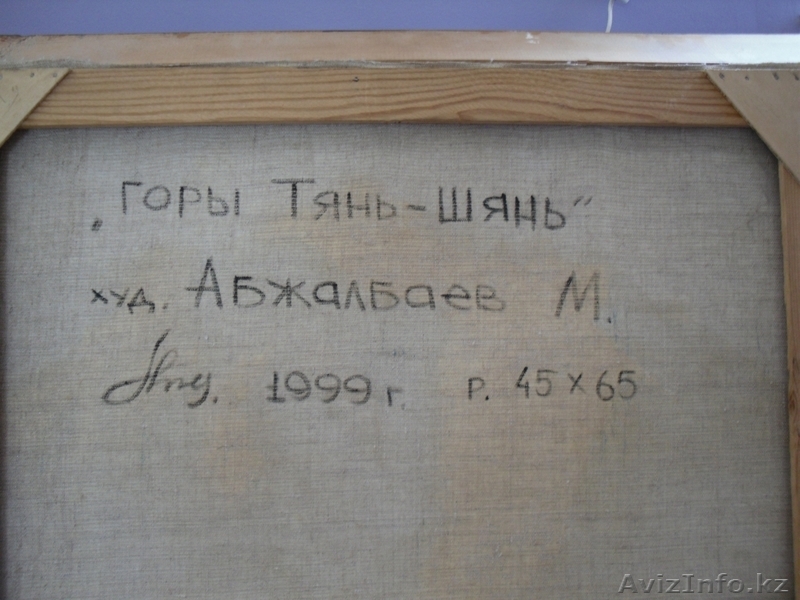 „Горы Тянь-Шянь"
худ. Абжалбаев М.
1999 г. р. 45 x 65
AvizInfo.kz